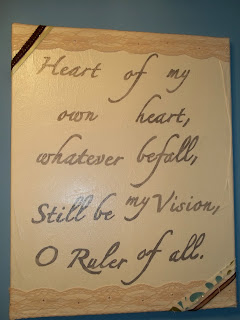 Heart of my
own heart,
whatever befall,
Still be my Vision,
O Ruler of all.